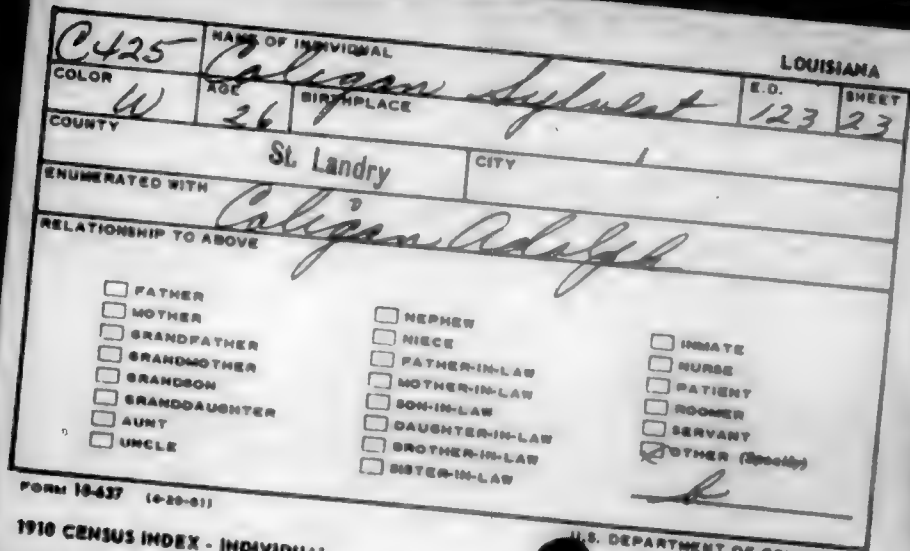 C425 NAME OF INDIVIDUAL LOUISIANA
Caligan Sylvest
COLOR W AGE 26 BIRTHPLACE E.D. 123 SHEET 23
COUNTY St. Landry CITY
ENUMERATED WITH Caligan Adolph
RELATIONSHIP TO ABOVE
FATHER
MOTHER
GRANDFATHER
GRANDMOTHER
GRANDSON
GRANDDAUGHTER
AUNT
UNCLE
NEPHEW
NIECE
FATHER-IN-LAW
MOTHER-IN-LAW
SON-IN-LAW
DAUGHTER-IN-LAW
BROTHER-IN-LAW
SISTER-IN-LAW
INMATE
NURSE
PATIENT
ROOMER
SERVANT
OTHER (Specify)
FORM 10-637 (4-20-61)
1910 CENSUS INDEX - INDIVIDUAL
U.S. DEPARTMENT OF